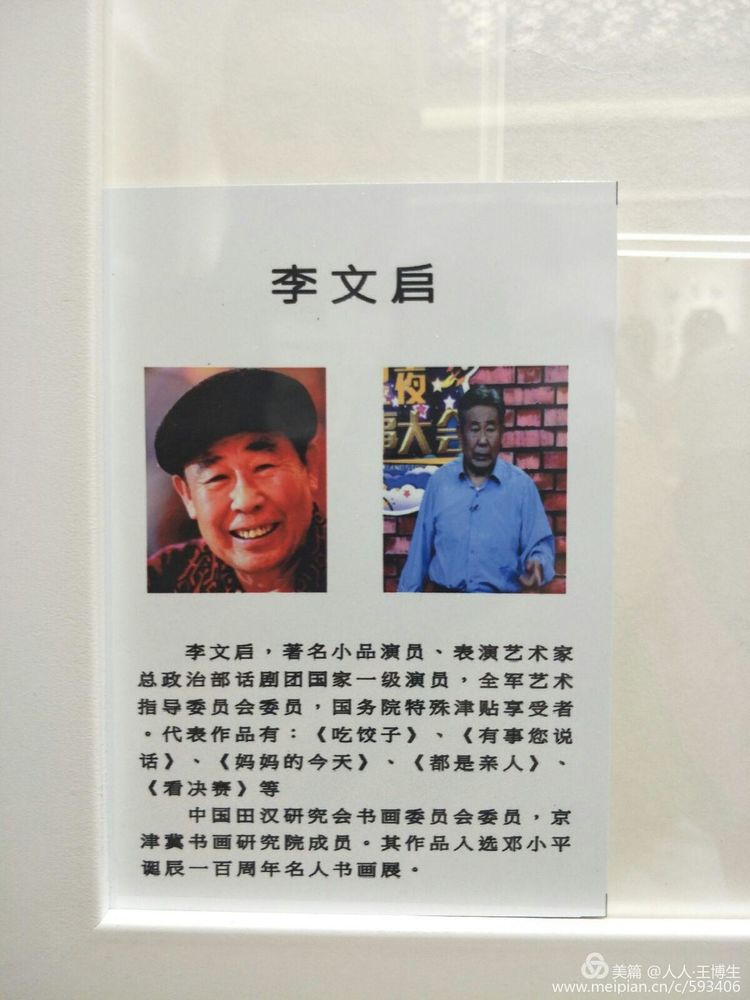 李文启
夜
事大会
李文启，著名小品演员、表演艺术家
总政治部话剧团国家一级演员，全军艺术
指导委员会委员，国务院特殊津贴享受者
。代表作品有：《吃饺子》、《有事您说
话》、《妈妈的今天》、《都是亲人》、
《看决赛》等
中国田汉研究会书画委员会委员，京
津冀书画研究院成员。其作品入选邓小平
诞辰一百周年名人书画展。
美篇 @人人·王博生
www.meipian.cn/c/593406